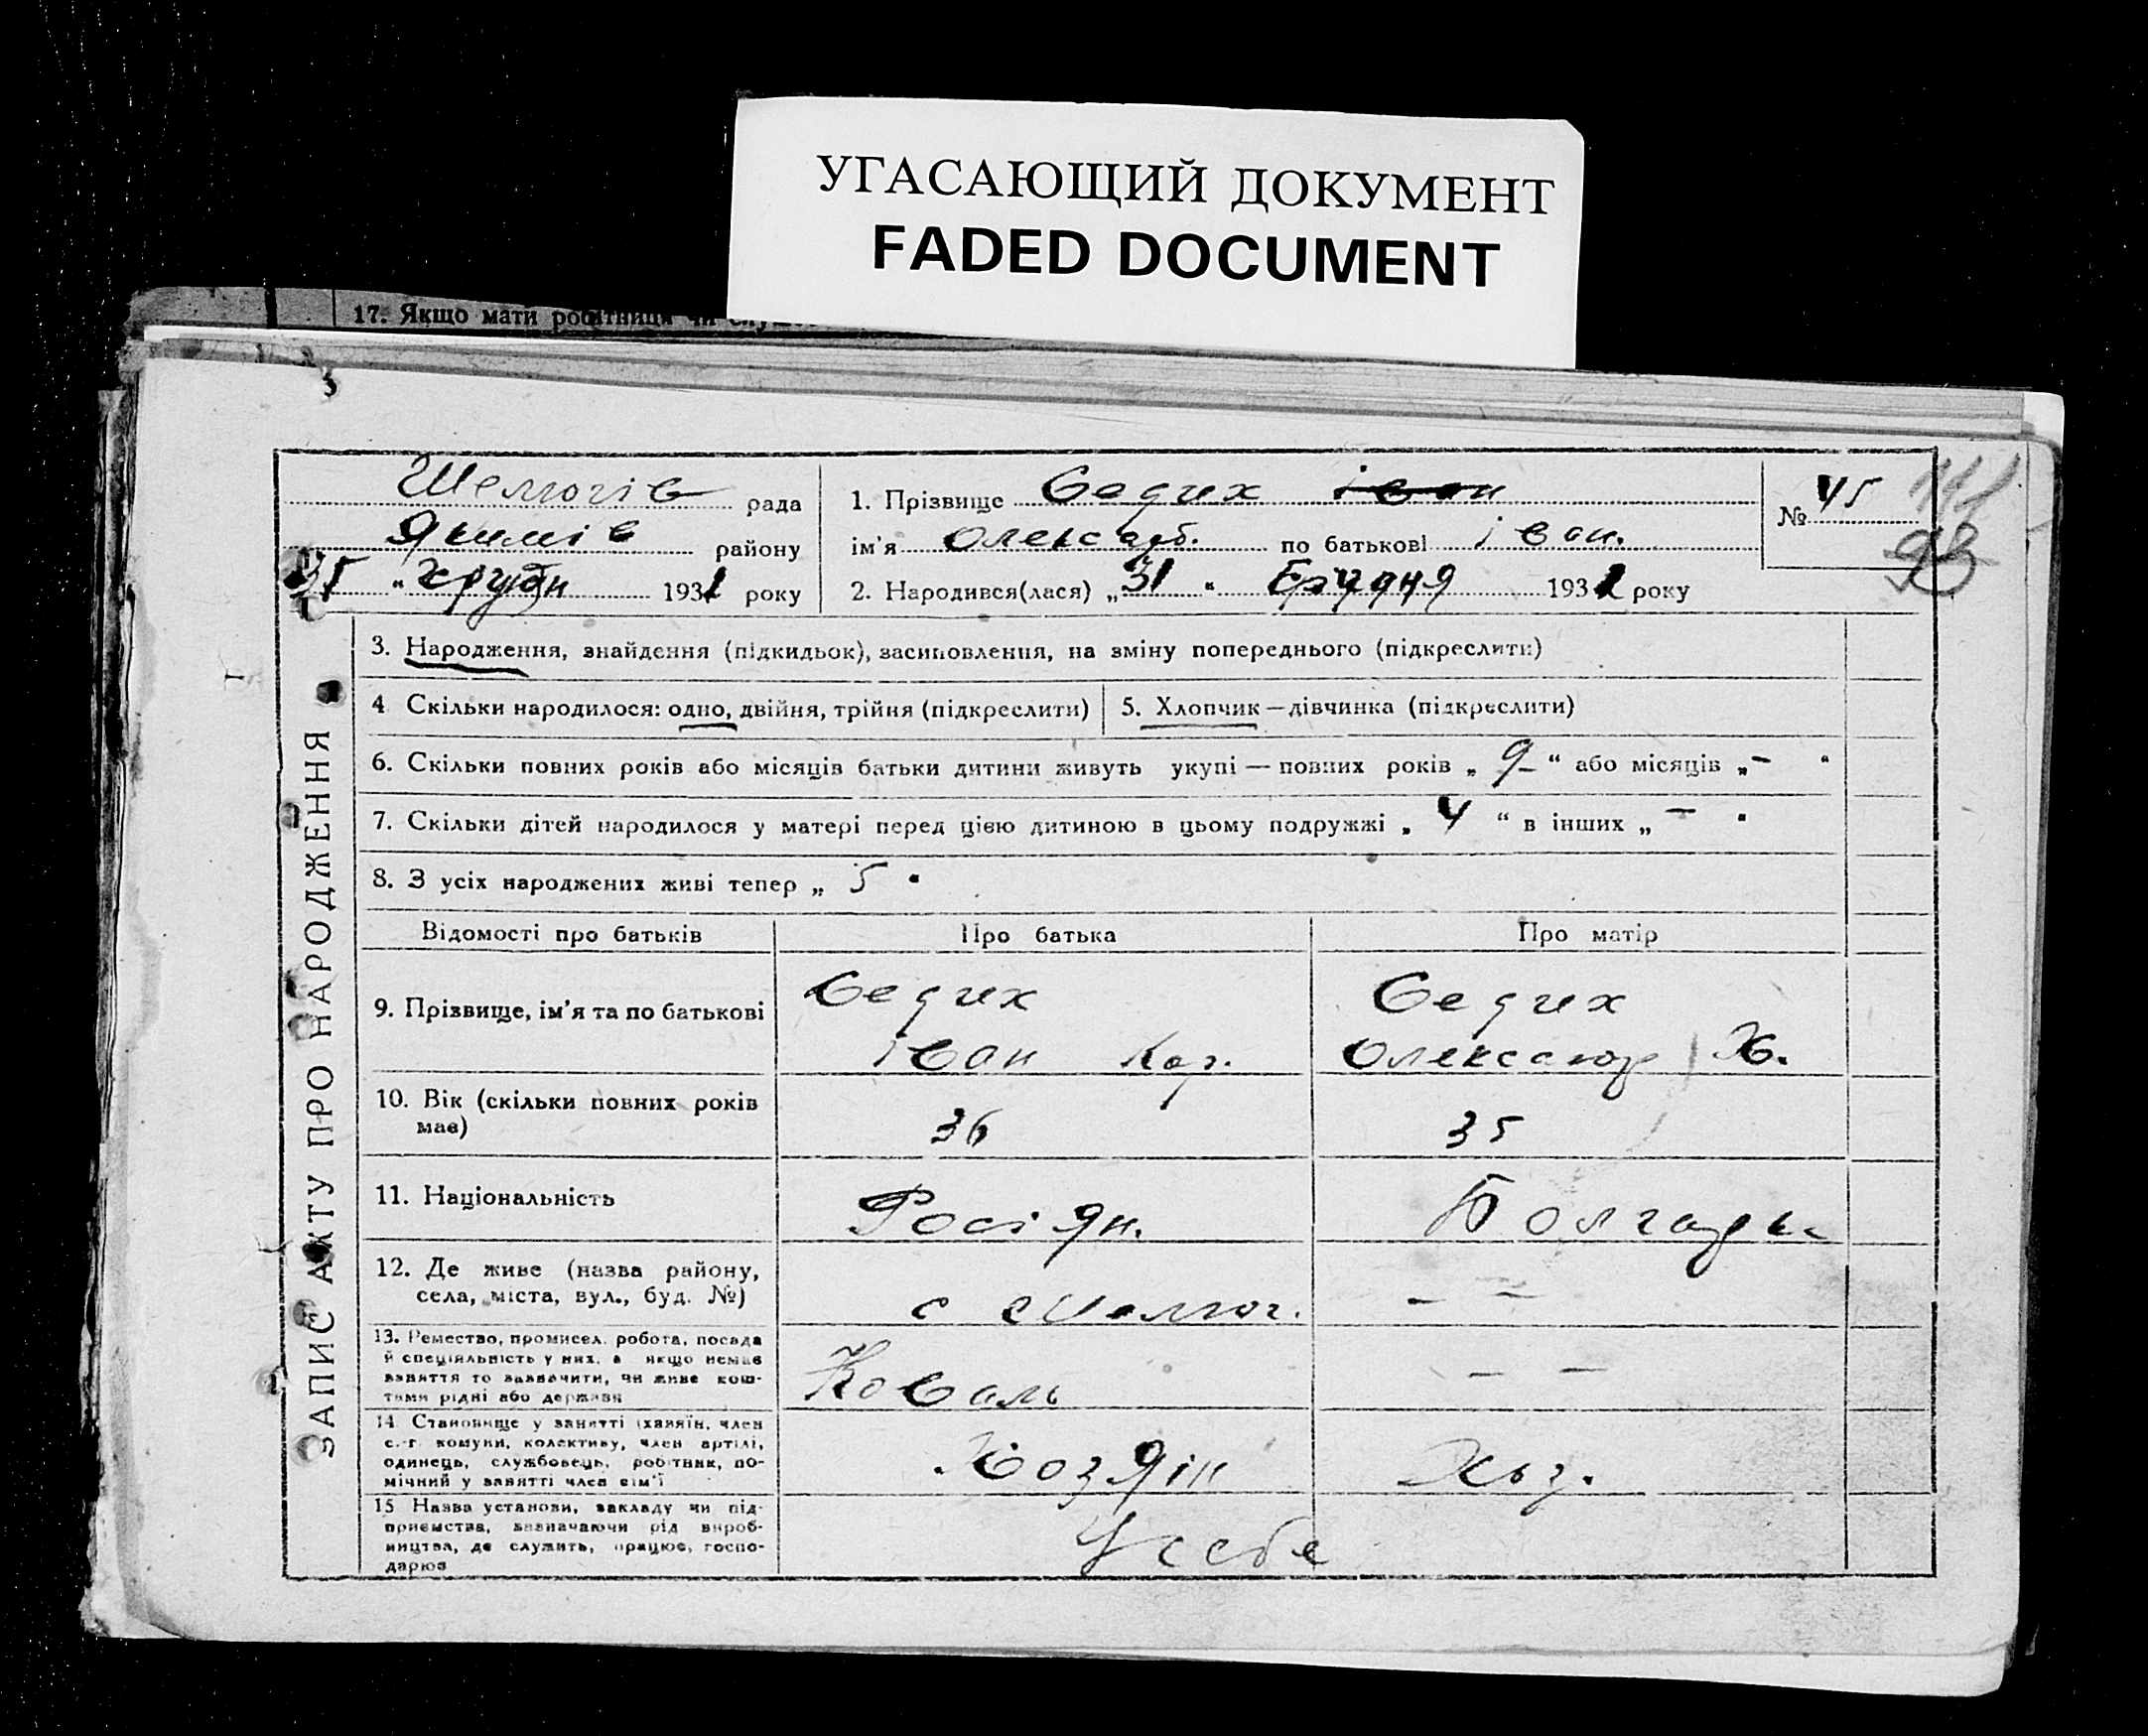 УГАСАЮЩИЙ ДОКУМЕНТ
FADED DOCUMENT
17. Якщо мати робітниця чи
рада
Якимів району
31 " 1931 року
1. Прізвище Седих іван
ім'я Олександ. по батькові іван.
2. Народився(лася) „31" Грудня 1931 року
№ 45
93
ЗАПИС АКТУ ПРО НАРОДЖЕННЯ
3. Народження, знайдення (підкидьок), засиновлення, на зміну попереднього (підкреслити)
4 Скільки народилося: одно, двійня, трійня (підкреслити)
5. Хлопчик—дівчинка (підкреслити)
6. Скільки повних років або місяців батьки дитини живуть укупі — повних років „ 9 " або місяців „ – "
7. Скільки дітей народилося у матері перед цією дитиною в цьому подружжі „ 4 " в інших „ – "
8. З усіх народжених живі тепер „ 5 "
Відомості про батьків Про батька Про матір
9. Прізвище, ім'я та по батькові
Седих
іван
Седих
Х.
10. Вік (скільки повних років
має)
36
35
11. Національність
Росіян.
Болгарк
12. Де живе (назва району,
села, міста, вул., буд. №)
с
– –
13. Ремество, промисел, робота, посада
й спеціяльність у них, а якщо немає
заняття то зазначити, чи живе кош-
тами рідні або держави
Коваль
– –
14 Становище у занятті (хазяїн, член
с.-г. комуни, колективу, член артілі,
одинець, службовець, робітник, по-
мічний у занятті член сім'ї
Хозяін
15 Назва установи, закладу чи під-
приємства, зазначаючи рід вироб-
ництва, де служить, працює, госпо-
дарює
У себе